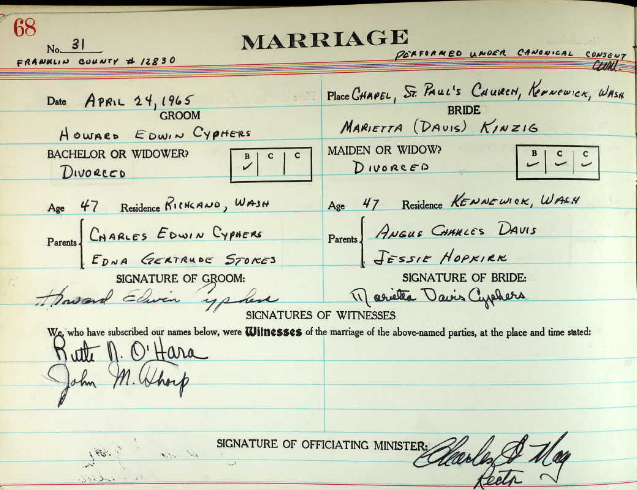 68
No. 31
MARRIAGE
FRANKLIN COUNTY # 12830
PERFORMED UNDER CANONICAL CONSENT
Date APRIL 24, 1965
Place CHAPEL, ST. PAUL'S CHURCH, KENNEWICK, WASH
GROOM
BRIDE
HOWARD EDWIN CYPHERS
MARIETTA (DAVIS) KINZIG
BACHELOR OR WIDOWER?
B C C
MAIDEN OR WIDOW?
B C C
DIVORCED
✓
DIVORCED
✓ ✓ ✓
Age 47 Residence RICHLAND, WASH
Age 47 Residence KENNEWICK, WASH
Parents
CHARLES EDWIN CYPHERS
EDNA GERTRUDE STOKES
Parents
ANGUS CHARLES DAVIS
JESSIE HOPKIRK
SIGNATURE OF GROOM:
SIGNATURE OF BRIDE:
Howard Edwin Cyphers
Marietta Davis Cyphers
SIGNATURES OF WITNESSES
We, who have subscribed our names below, were Witnesses of the marriage of the above-named parties, at the place and time stated:
Ruth N. O'Hara
John M. Thorp
SIGNATURE OF OFFICIATING MINISTER:
Charles May
Rector